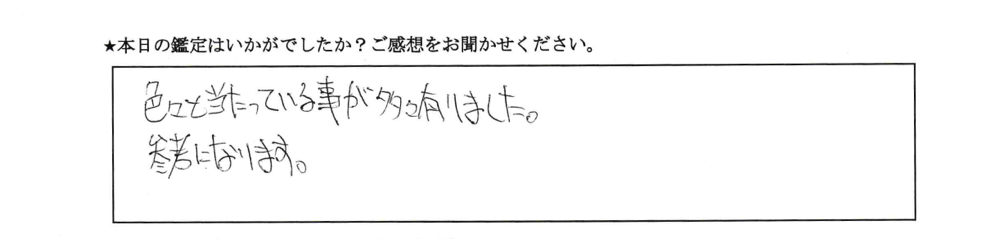 ★本日の鑑定はいかがでしたか？ご感想をお聞かせください。
色々と当たっている事が多々有りました。
参考になります。